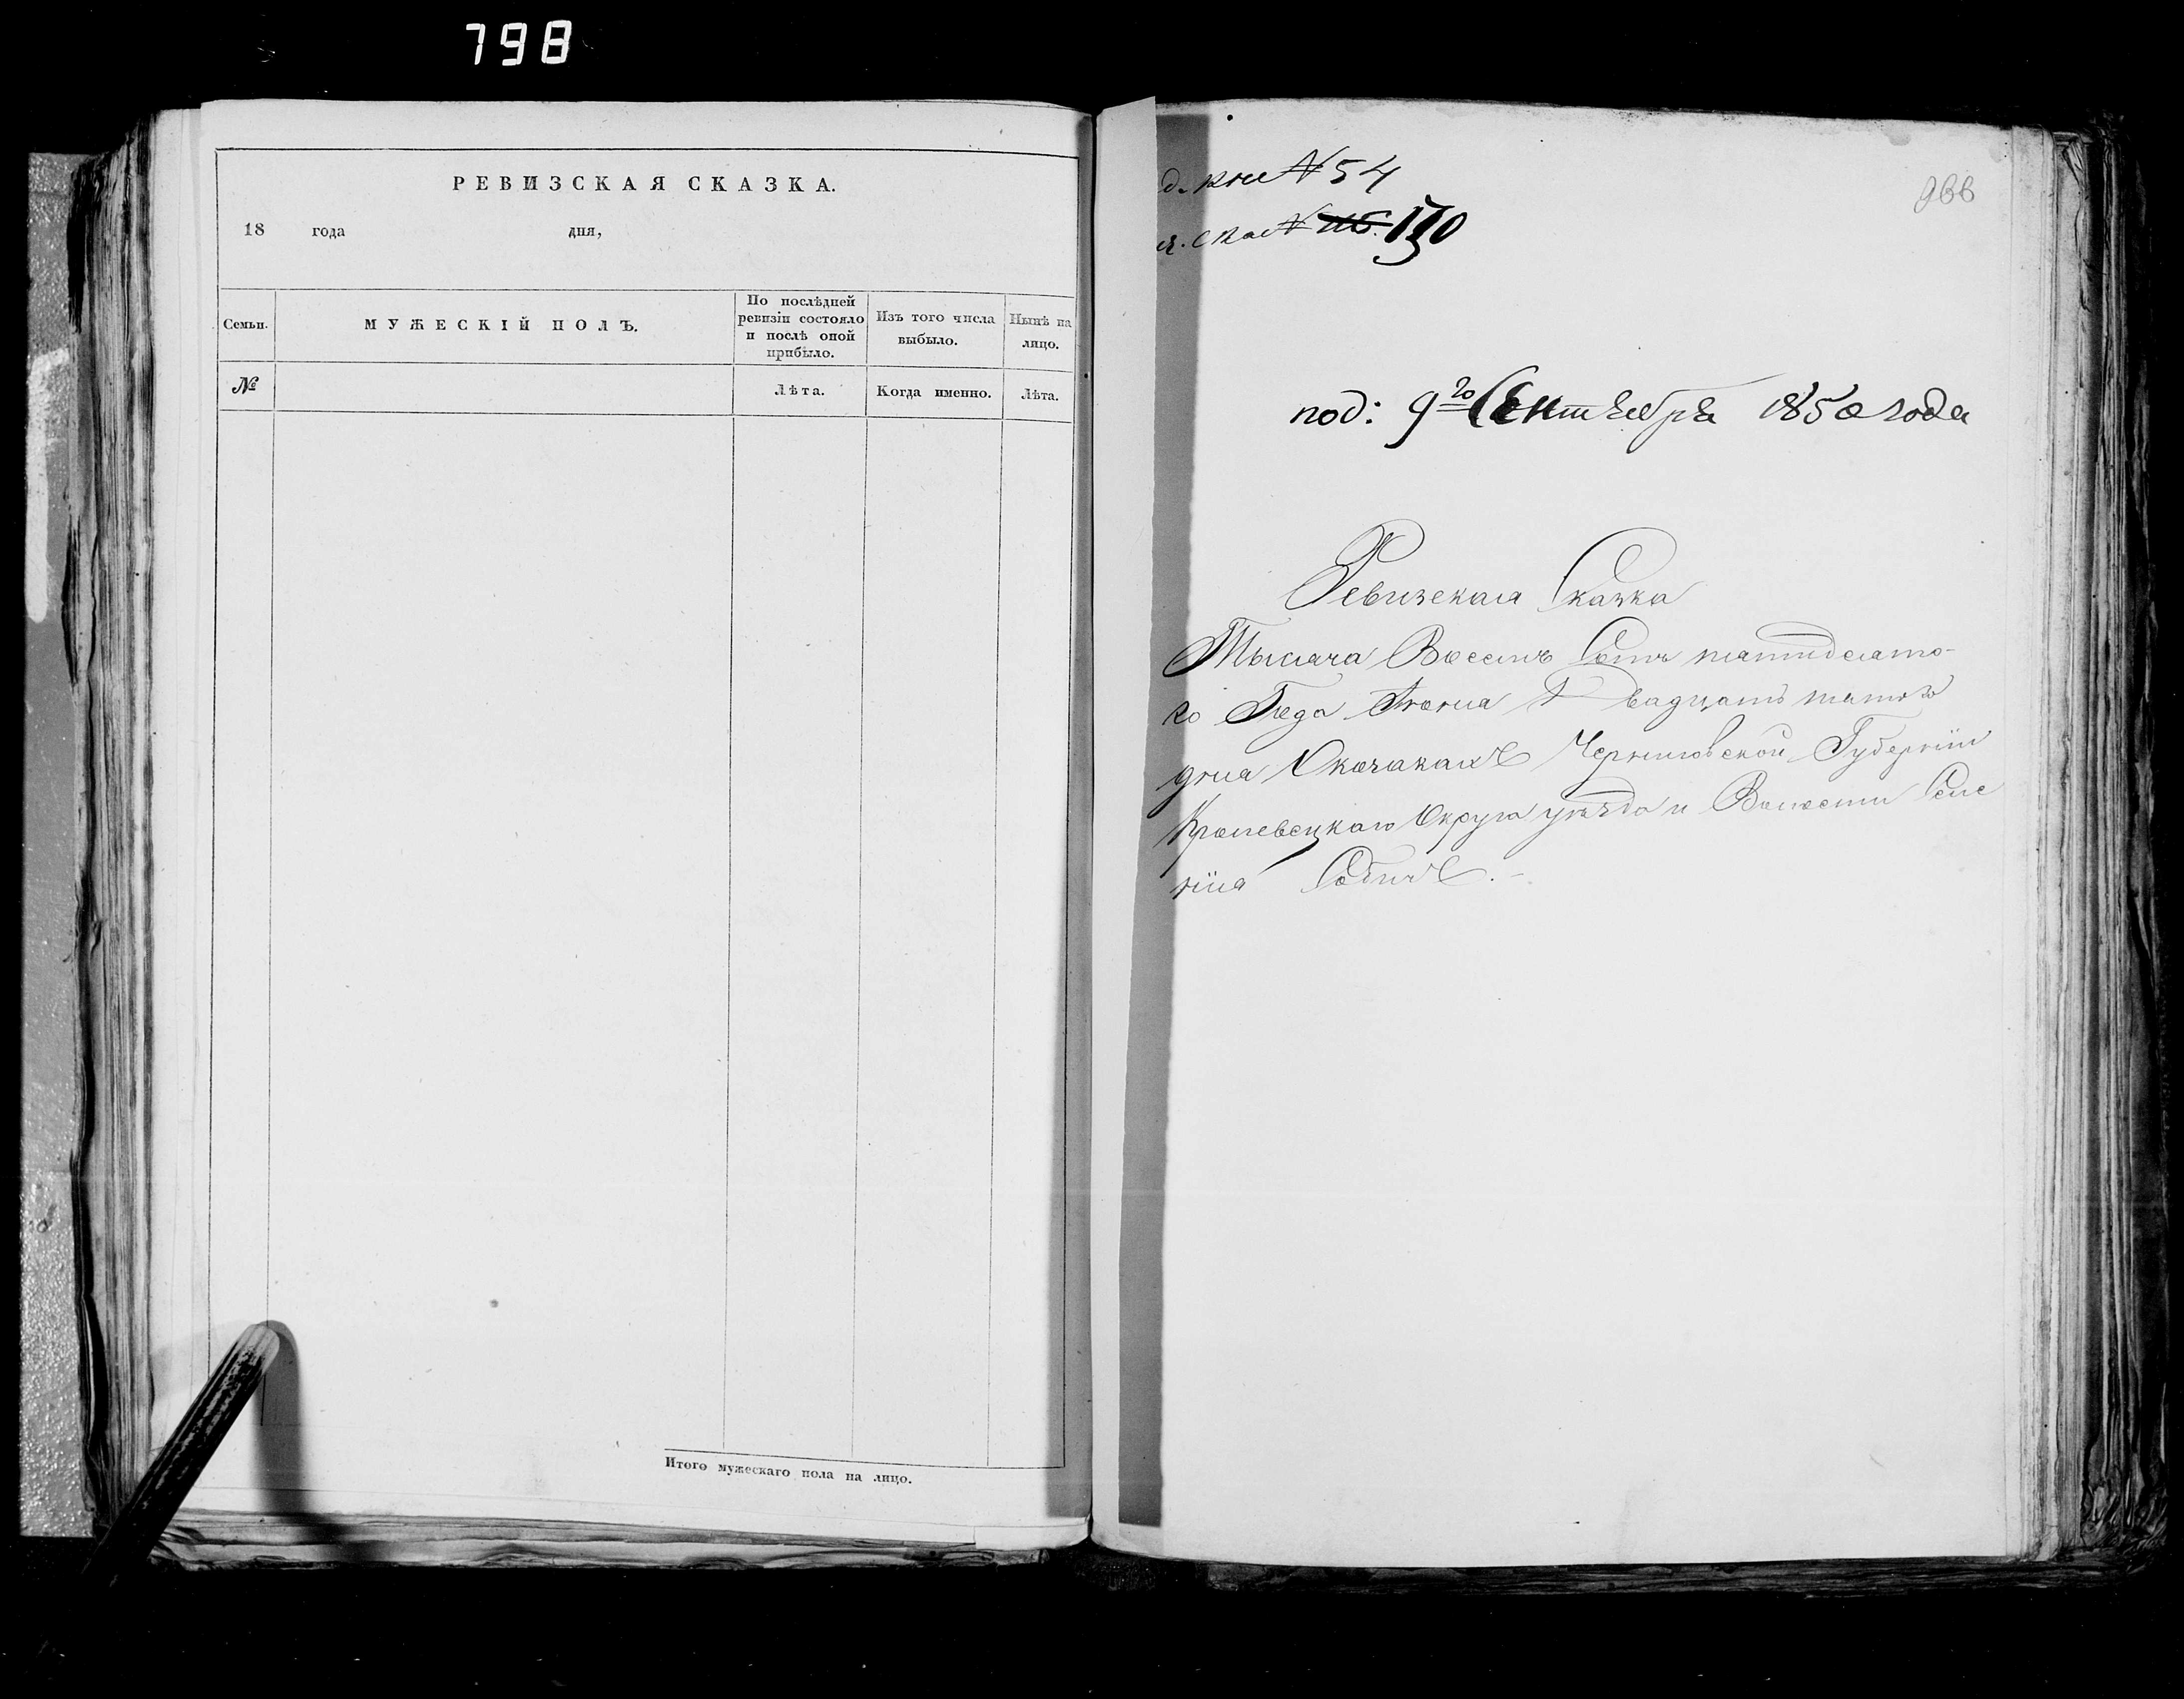 798
РЕВИЗСКАЯ СКАЗКА.
18 года дня,
Семьи. МУЖЕСКІЙ ПОЛЪ. По послѣдней ревизіи состояло и послѣ оной прибыло. Изъ того числа выбыло. Нынѣ на лицо.
№ Лѣта. Когда именно. Лѣта.
Итого мужескаго пола на лицо.
д. кни № 54
ск № 130
966
под: 9го Сентября 1850 года
Ревизская Сказка
Тысяча Восемь Сотъ пятидесято-
го Года Июня Двадцать пятого
дня Оказакахъ Черниговской Губерніи
Кролевецкаго Округа уѣзда и Волости Селе
нія Собичъ.-